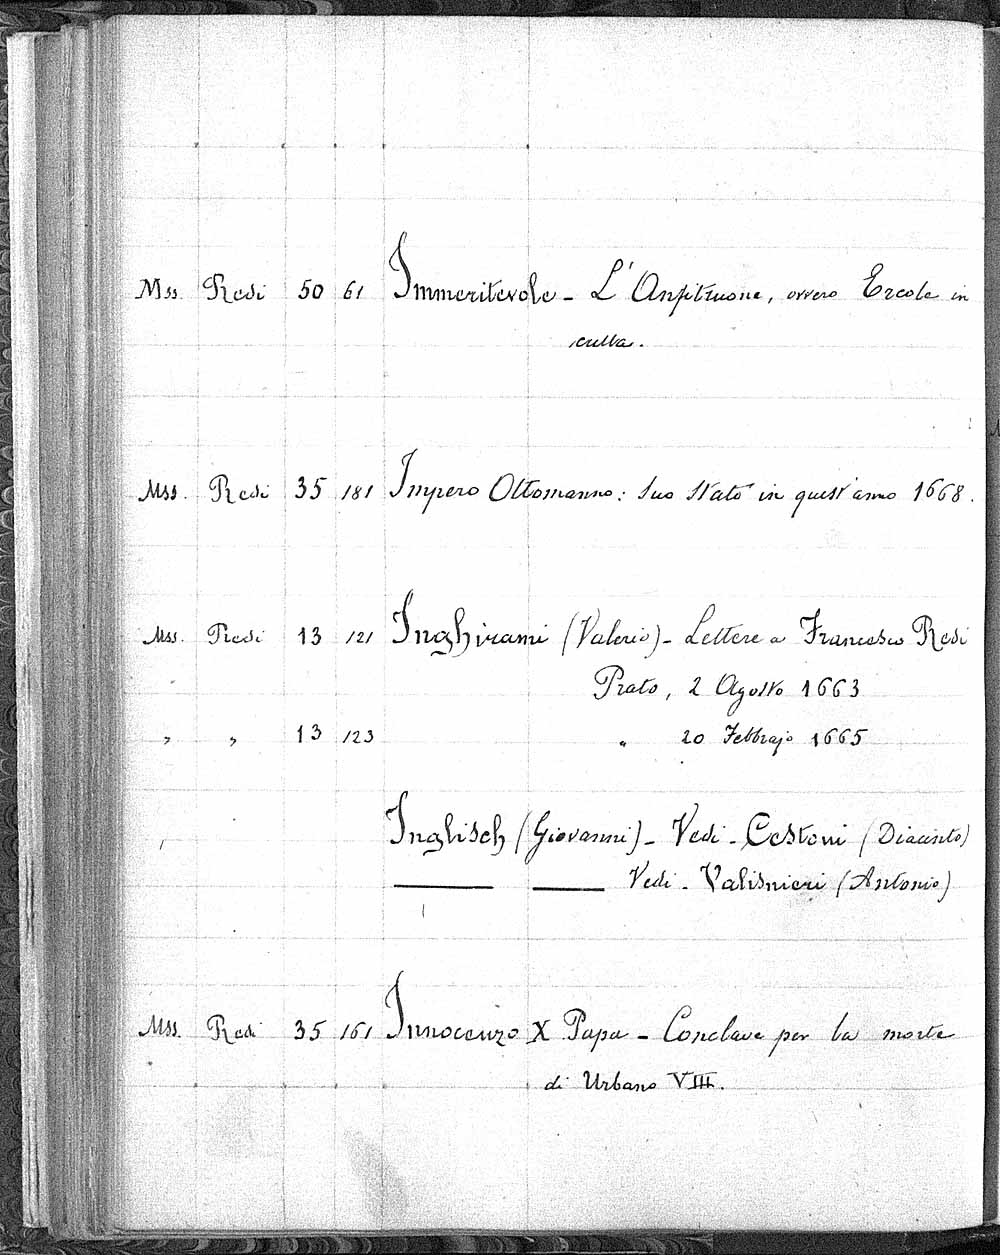 Mss. Redi 50 61 Immeritevole - L'Anfitruone, ovvero Ercole in
culla.
Mss. Redi 35 181 Impero Ottomanno: suo stato in quest'anno 1668.
Mss. Redi 13 121 Inghirami (Valerio) - Lettere a Francesco Redi
Prato, 2 Agosto 1663
" " 13 123 " 20 Febbrajo 1665
Inglisch (Giovanni) - Vedi - Cestoni (Diacinto)
——— ——— Vedi - Valisnieri (Antonio)
Mss. Redi 35 161 Innocenzo X Papa - Conclave per la morte
di Urbano VIII.